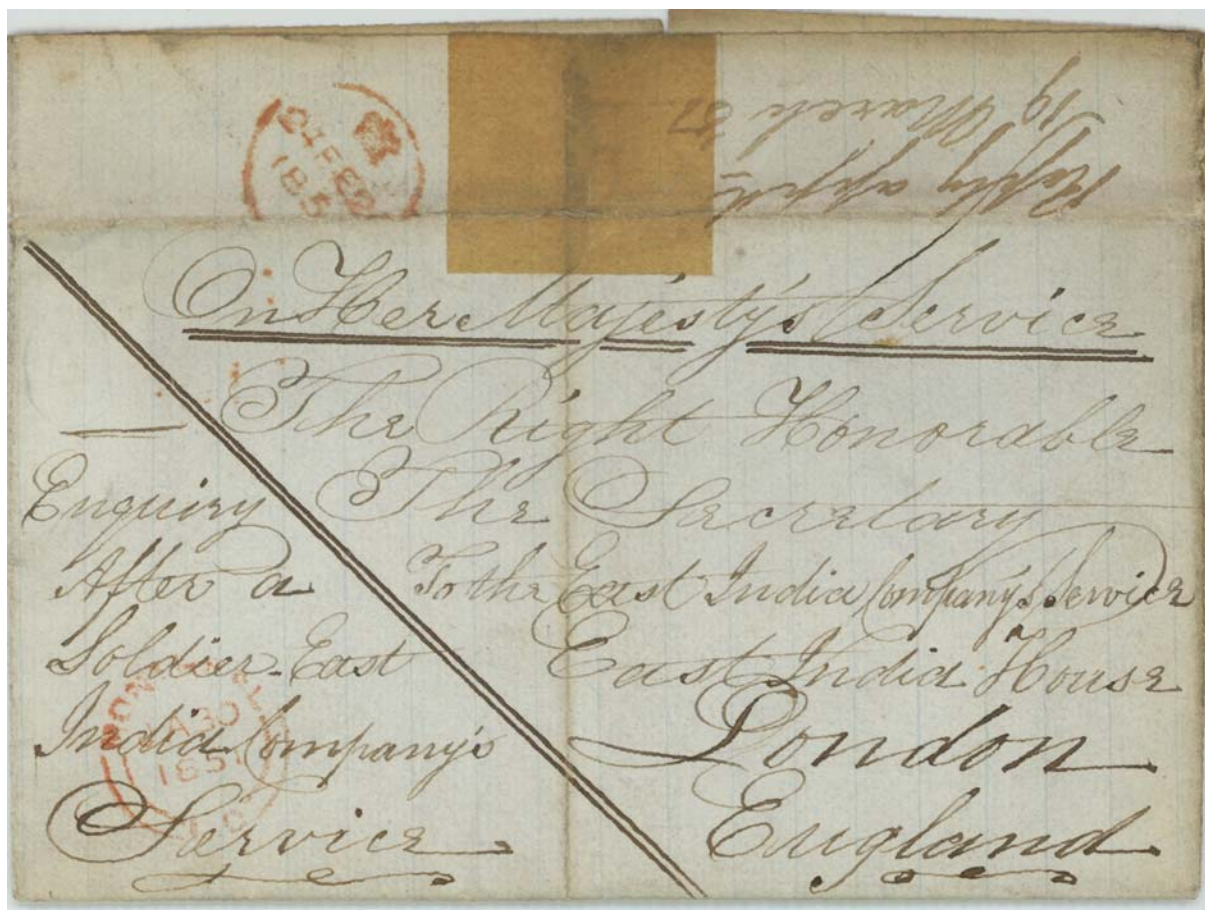 19 March 57
Reply
On Her Majesty's Service
The Right Honorable
The Secretary
To the East India Company's Service
East India House
London
England
Enquiry
After a
Soldier East
India Company's
Service
FE
185
185